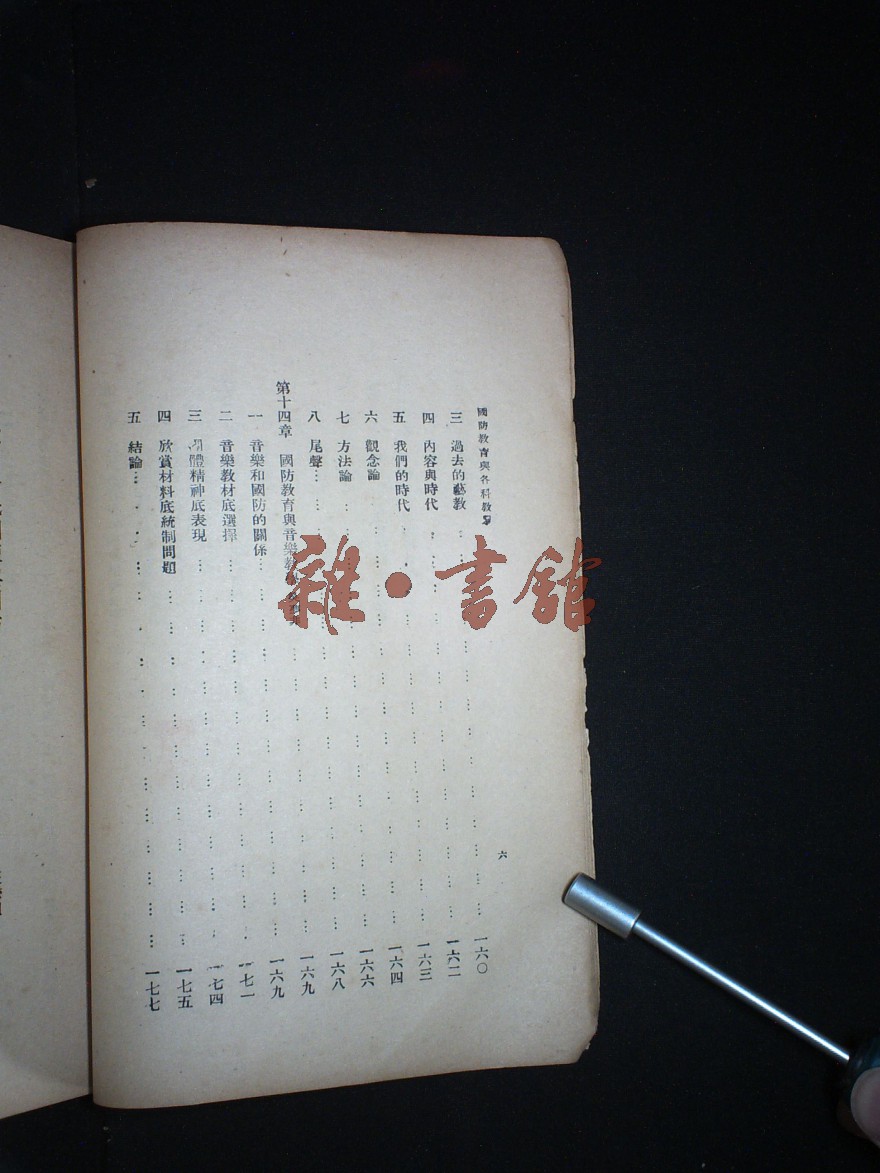 國防教育與各科教學
六
三 過去的藝教 一六〇
四 內容與時代 一六二
五 我們的時代 一六三
六 觀念論 一六四
七 方法論 一六六
八 尾聲 一六八
第十四章 國防教育與音樂教 一六九
一 音樂和國防的關係 一六九
二 音樂教材底選擇 一七一
三 團體精神底表現 一七四
四 欣賞材料底統制問題 一七五
五 結論 一七七
雜·書館